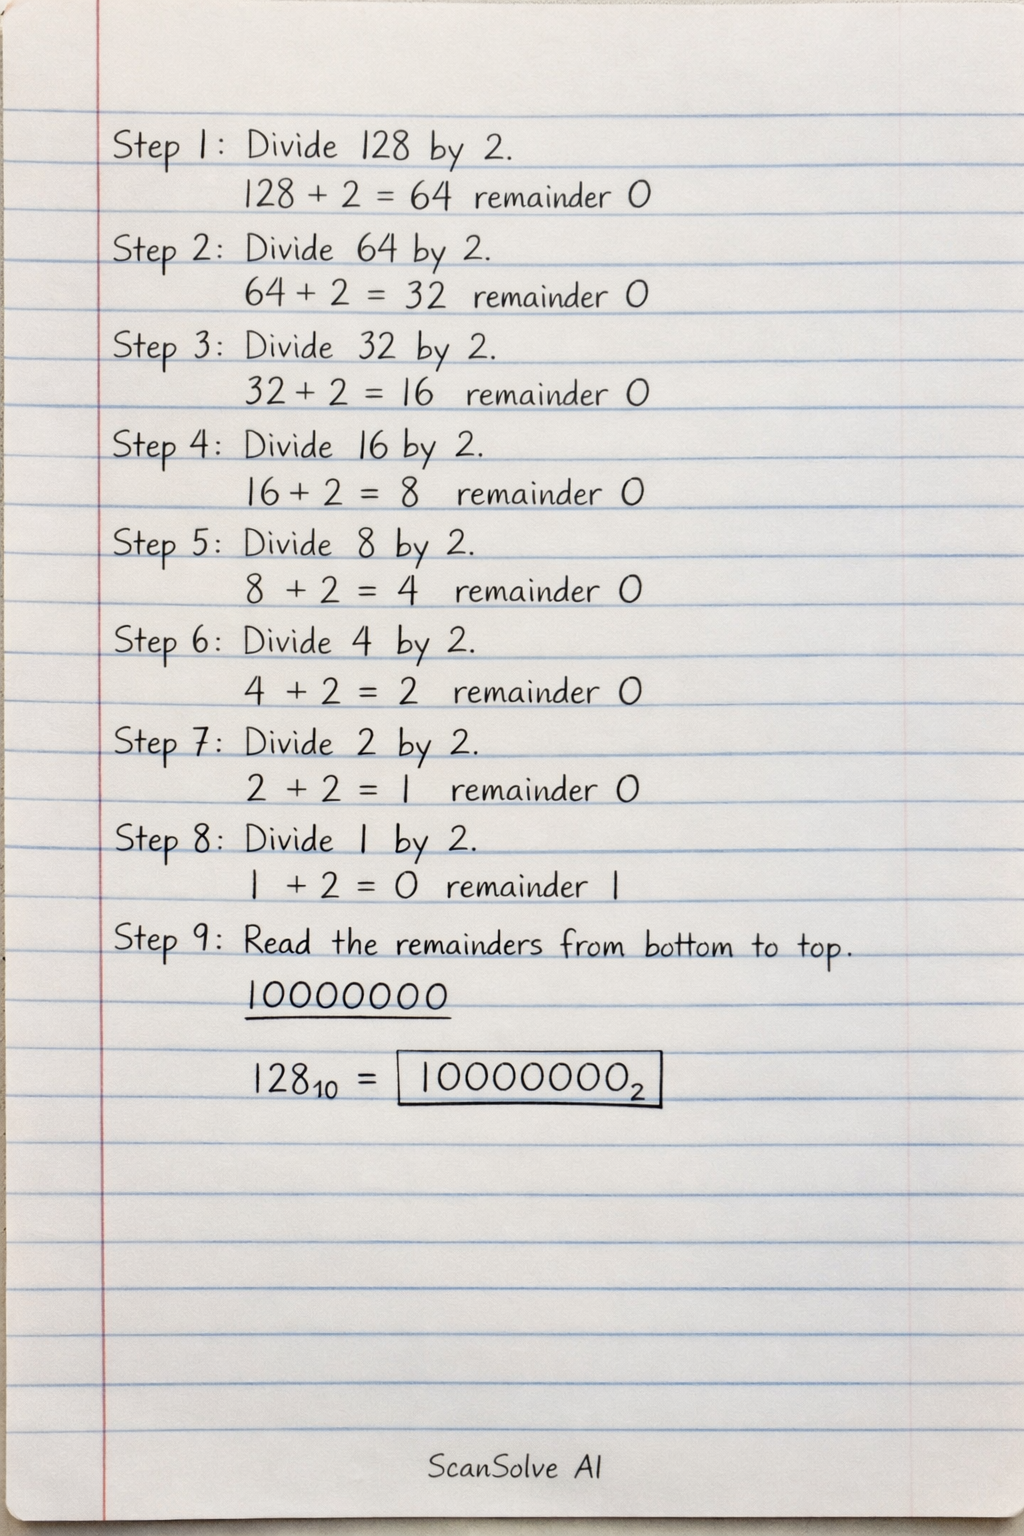 Step 1: Divide 128 by 2.
128 + 2 = 64 remainder 0
Step 2: Divide 64 by 2.
64 + 2 = 32 remainder 0
Step 3: Divide 32 by 2.
32 + 2 = 16 remainder 0
Step 4: Divide 16 by 2.
16 + 2 = 8 remainder 0
Step 5: Divide 8 by 2.
8 + 2 = 4 remainder 0
Step 6: Divide 4 by 2.
4 + 2 = 2 remainder 0
Step 7: Divide 2 by 2.
2 + 2 = 1 remainder 0
Step 8: Divide 1 by 2.
1 + 2 = 0 remainder 1
Step 9: Read the remainders from bottom to top.
10000000
128₁₀ = 10000000₂
ScanSolve AI